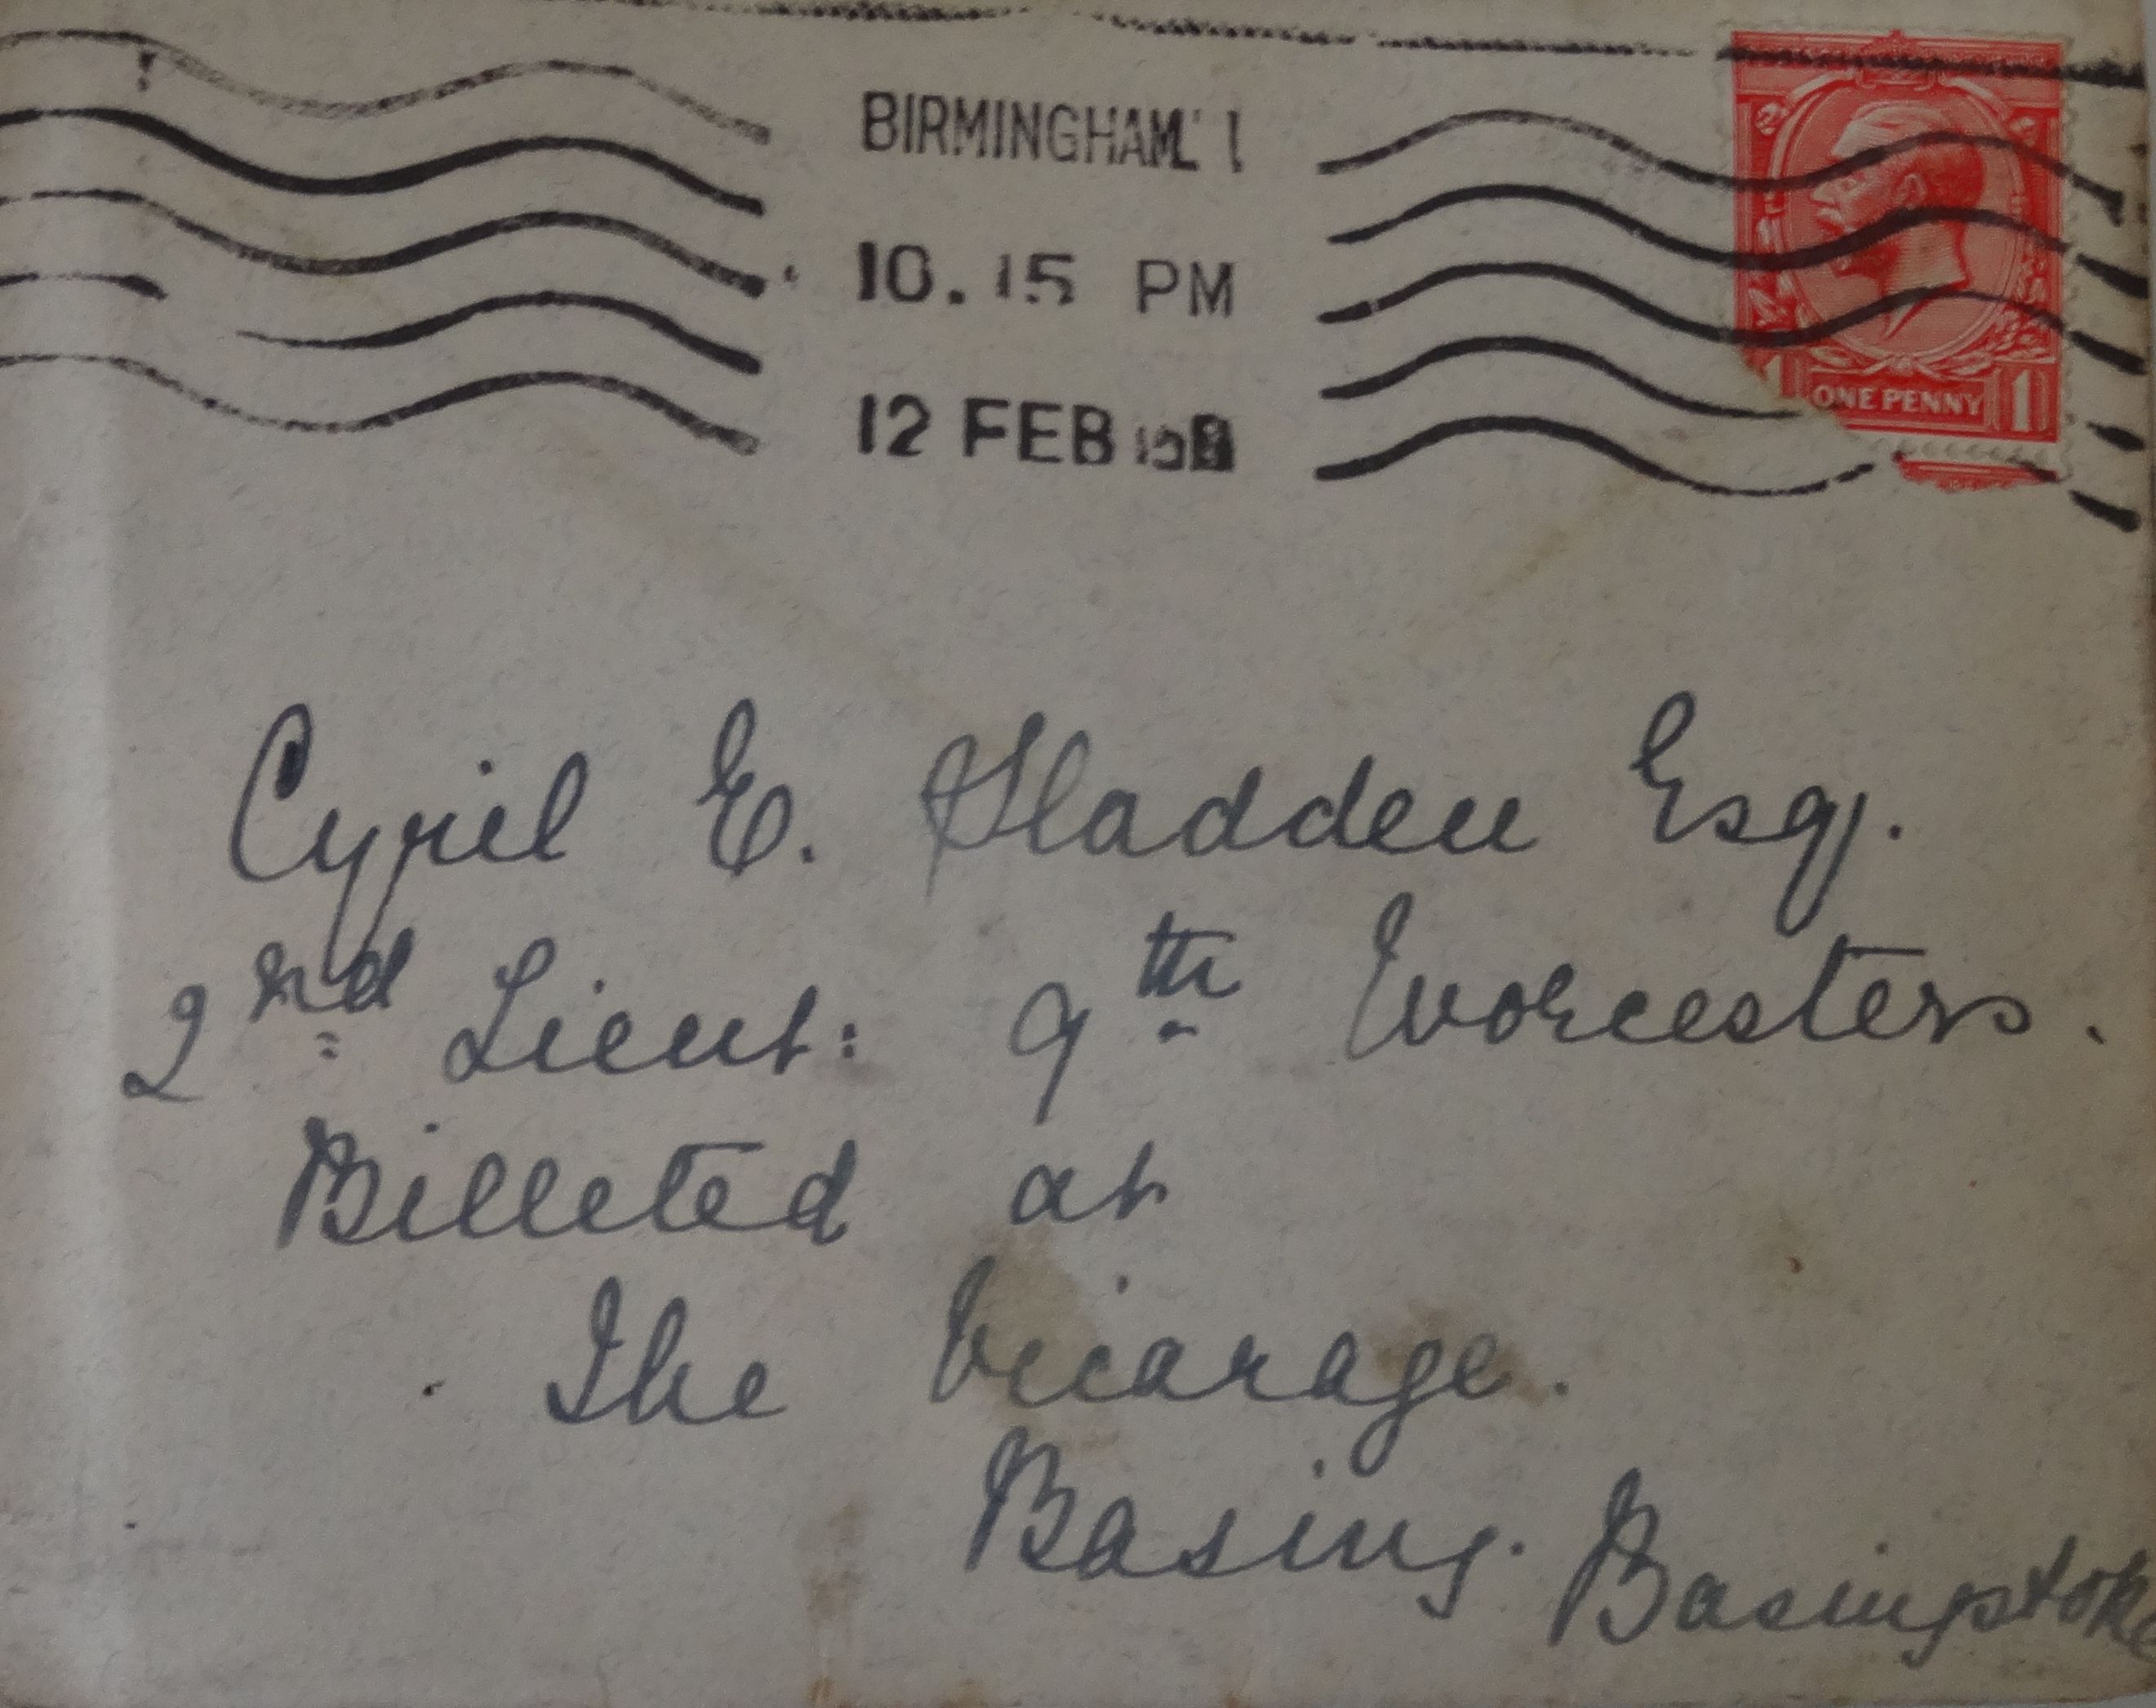 BIRMINGHAM. 1
10.15 PM
12 FEB
1 ONE PENNY 1
Cyril E. Sladden Esq.
2nd Lieut: 9th Worcesters.
Billeted at
The Vicarage.
Basing. Basingstoke